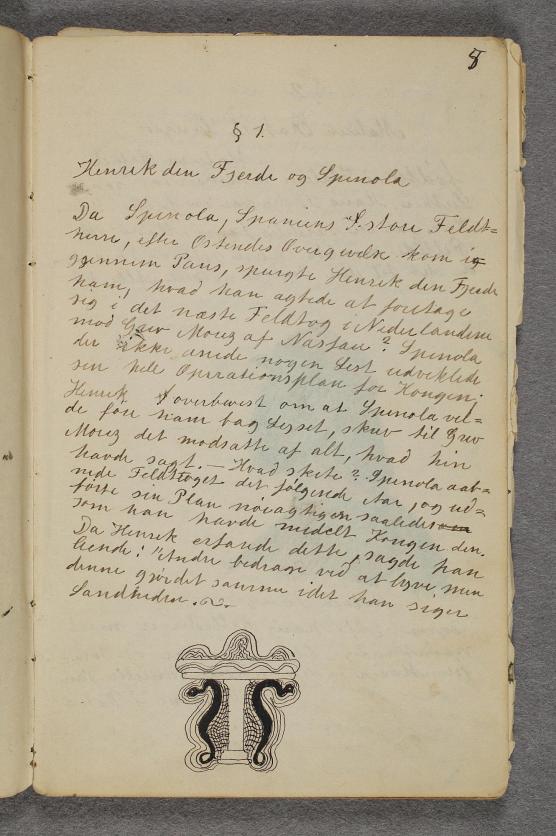 8
§ 1.
Henrik den Fjerde og Spinola
Da Spinola, Spaniens S. store Feldt=
herre, efter Ostendes Overgivelse kom ig
gjennem Paris, spurgte Henrik den Fjerde
ham, hvad han agtede at foretage
sig i det næste Feldtog i Nederlandene
mod Grev Moriz af Nassau? Spinola
der ikke anede nogen List udviklede
sin hele Operationsplan for Kongen.
Henrik overbevist om at Spinola vil=
de føre ham bag Lyset, skrev til Grev
Moriz det modsatte af alt, hvad hin
havde sagt. — Hvad skete? Spinola aab=
nede Feldtoget det følgende Aar, og ud=
førte sin Plan nøiagtigen saaledes
som han havde meddelt Kongen den.
Da Henrik erfarede dette, sagde han
leende: "Andre bedrage ved at lyve, men
denne gjør det samme idet han siger
Sandheden.